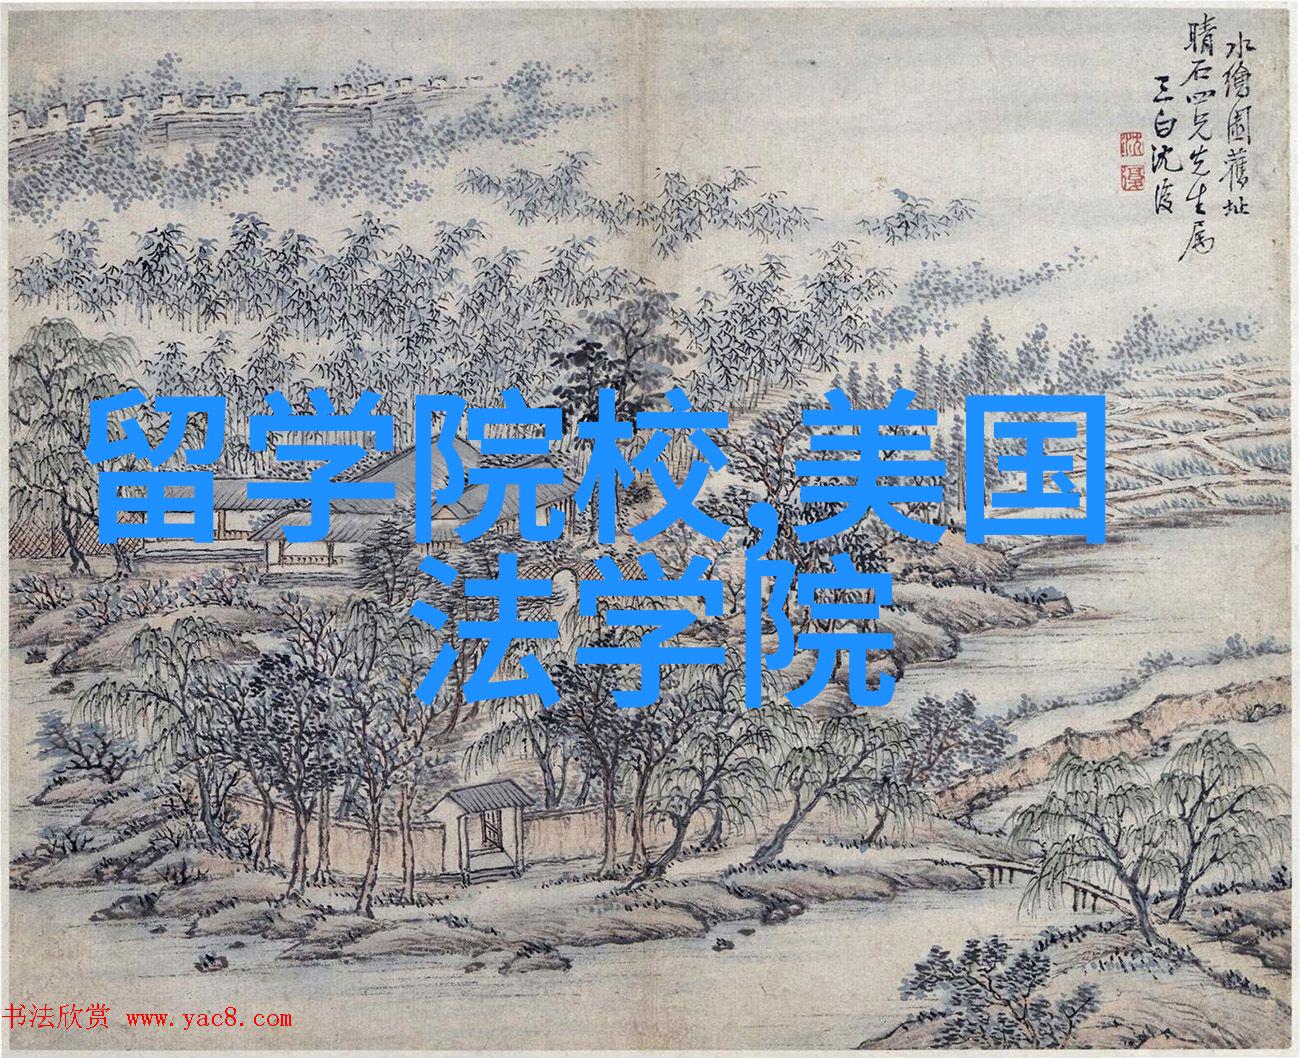 水繪園舊址
晴石四兄先生属
三白沈復
沈
復
留学院校,美国
法学院
书法欣赏 www.yac8.com